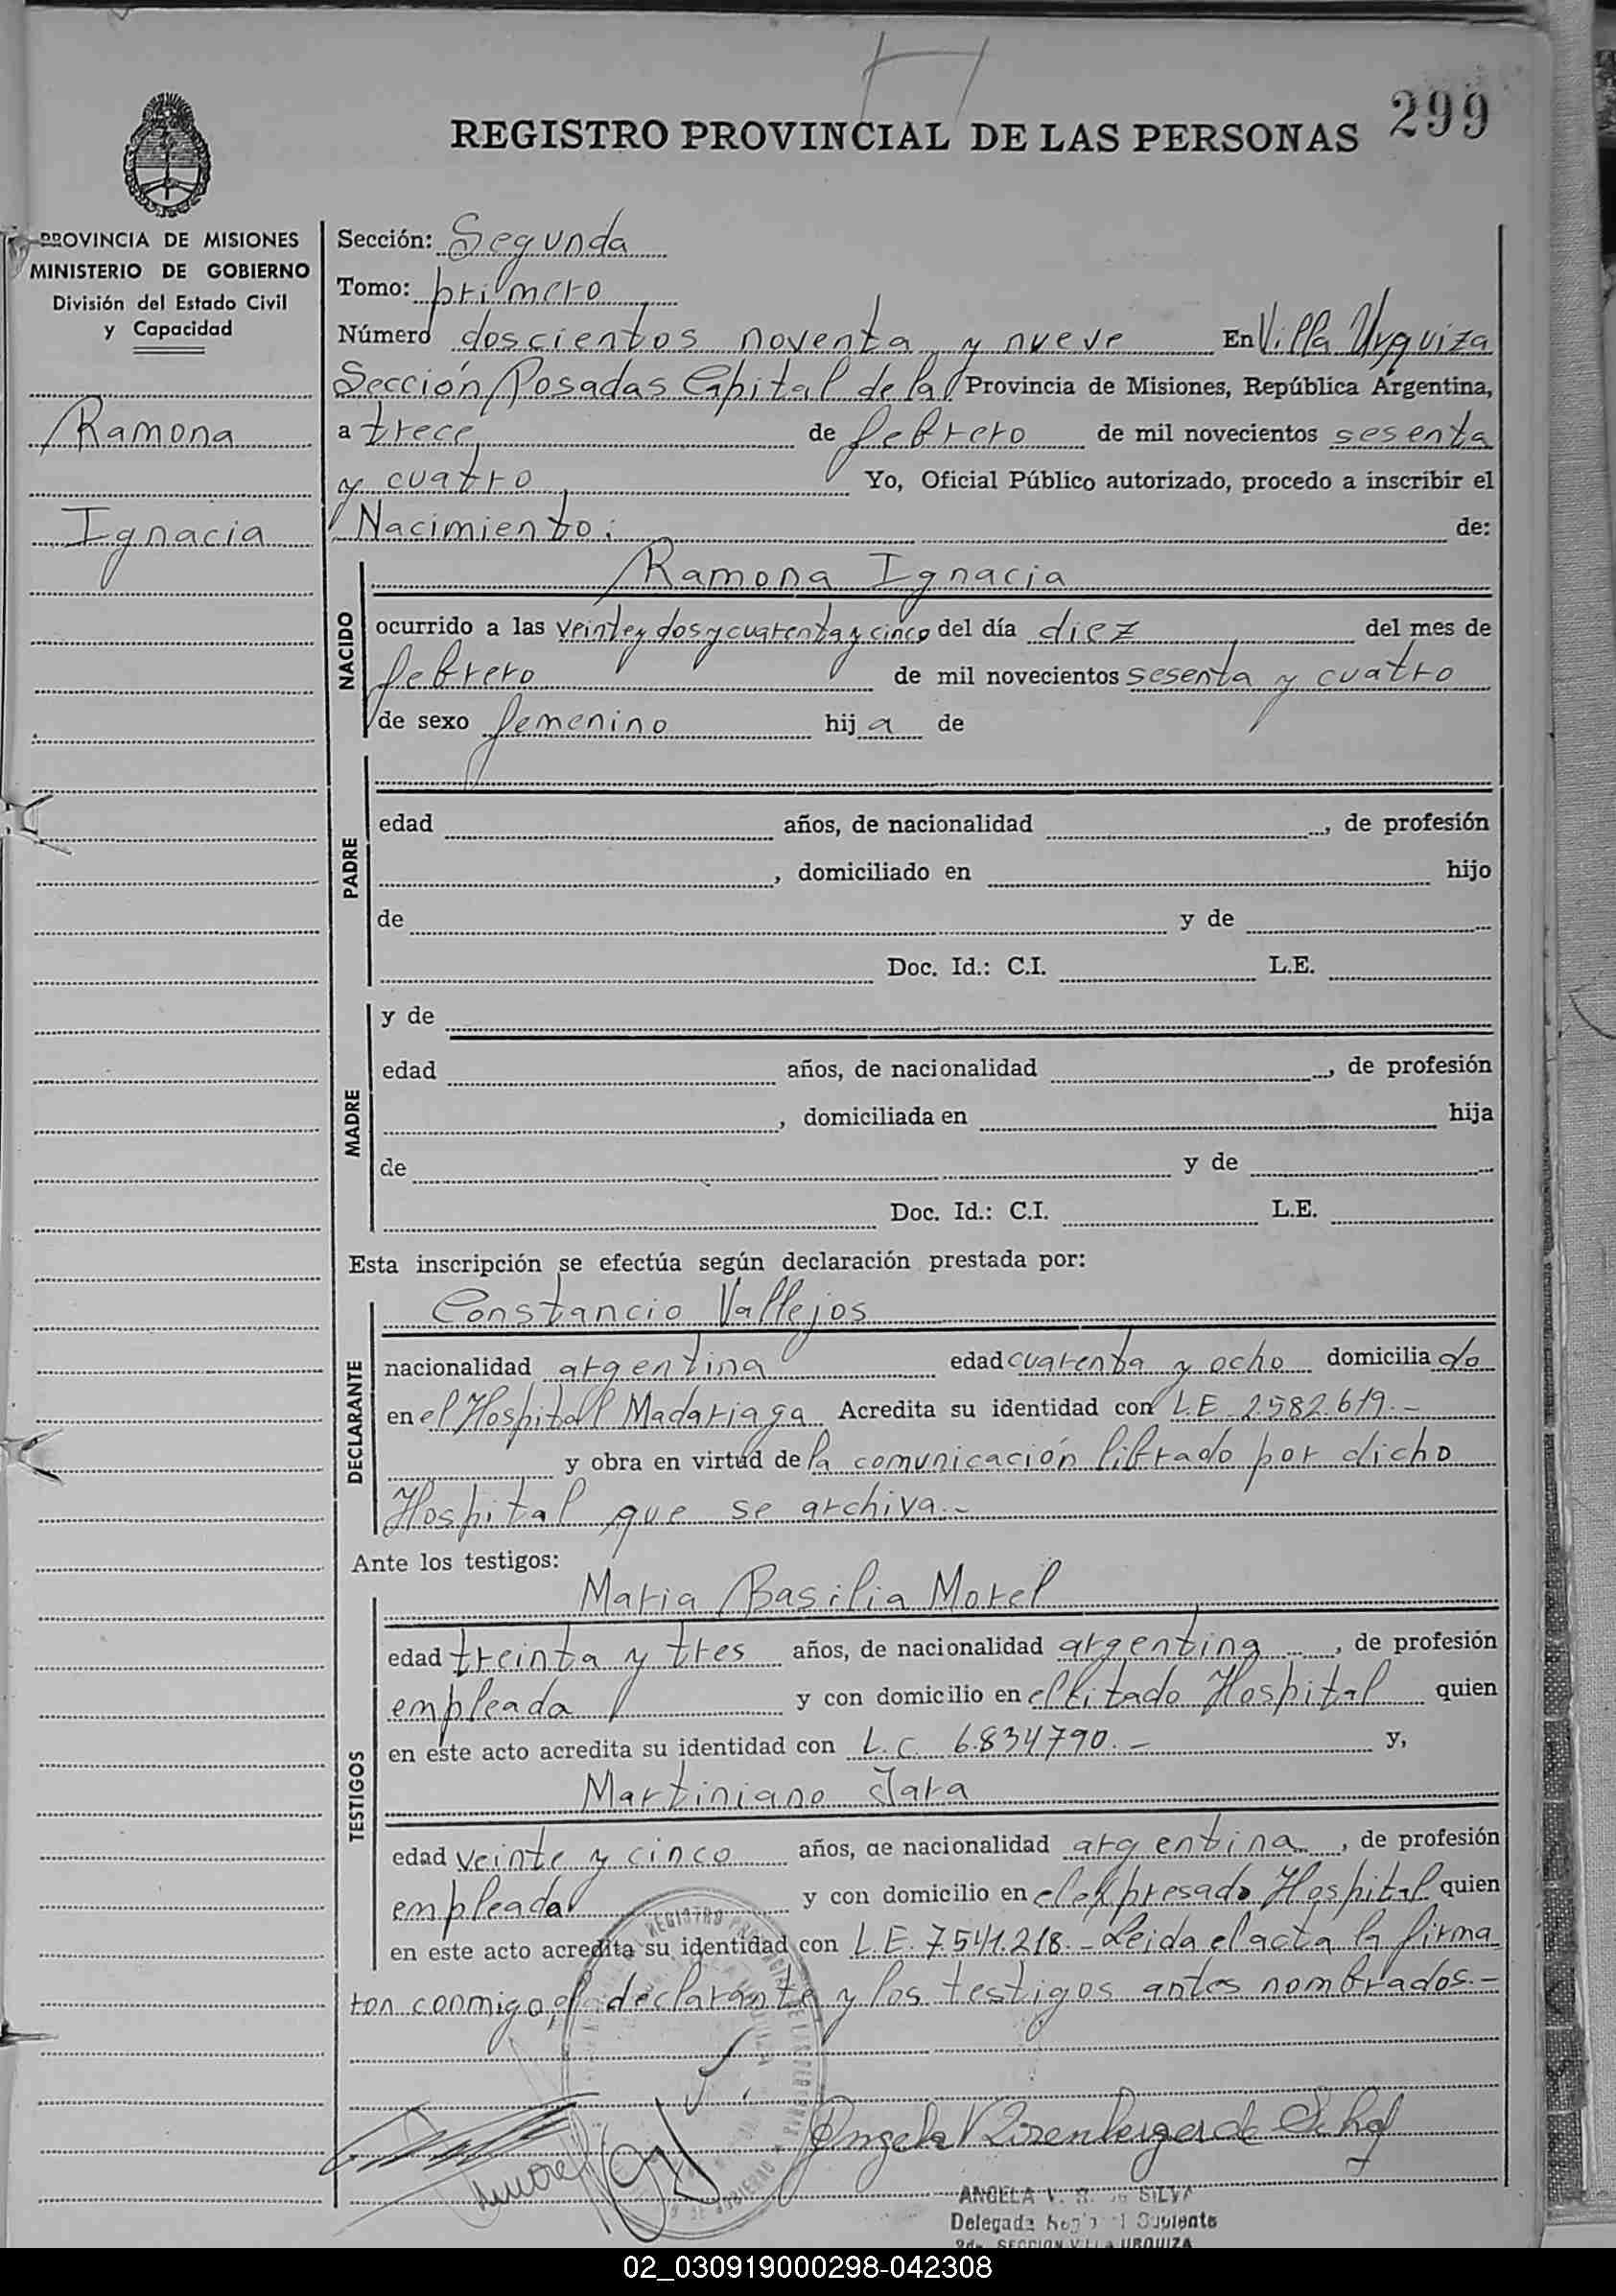 299
REGISTRO PROVINCIAL DE LAS PERSONAS
PROVINCIA DE MISIONES
MINISTERIO DE GOBIERNO
División del Estado Civil
y Capacidad
Ramona
Ignacia
Sección: Segunda
Tomo: primero
Número doscientos noventa y nueve En Villa Urquiza
Sección Posadas Capital de la Provincia de Misiones, República Argentina,
a trece de febrero de mil novecientos sesenta
y cuatro Yo, Oficial Público autorizado, procedo a inscribir el
Nacimiento: de:
NACIDO
Ramona Ignacia
ocurrido a las veinte y dos y cuarenta y cinco del día diez del mes de
febrero de mil novecientos sesenta y cuatro
de sexo femenino hij a de
PADRE
edad años, de nacionalidad , de profesión
, domiciliado en hijo
de y de
Doc. Id.: C.I. L.E.
MADRE
y de
edad años, de nacionalidad , de profesión
, domiciliada en hija
de y de
Doc. Id.: C.I. L.E.
Esta inscripción se efectúa según declaración prestada por:
DECLARANTE
Constancio Vallejos
nacionalidad argentina edad cuarenta y ocho domicilia do
en el Hospital Madariaga Acredita su identidad con L.E 2.582.619.-
y obra en virtud de la comunicación librado por dicho
Hospital que se archiva.-
Ante los testigos:
TESTIGOS
Maria Basilia Morel
edad treinta y tres años, de nacionalidad argentina, de profesión
empleada y con domicilio en el citado Hospital quien
en este acto acredita su identidad con L.C. 6.834790.- y,
Martiniano Jara
edad veinte y cinco años, de nacionalidad argentina, de profesión
empleada y con domicilio en el expresado Hospital quien
en este acto acredita su identidad con L.E. 7.541.218.- Leida el acta la firma
ron conmigo, el declarante y los testigos antes nombrados.-
Angela de
ANGELA V. R. de SILVA
Delegada Suplente
SECCION VILLA URQUIZA
02_030919000298-042308